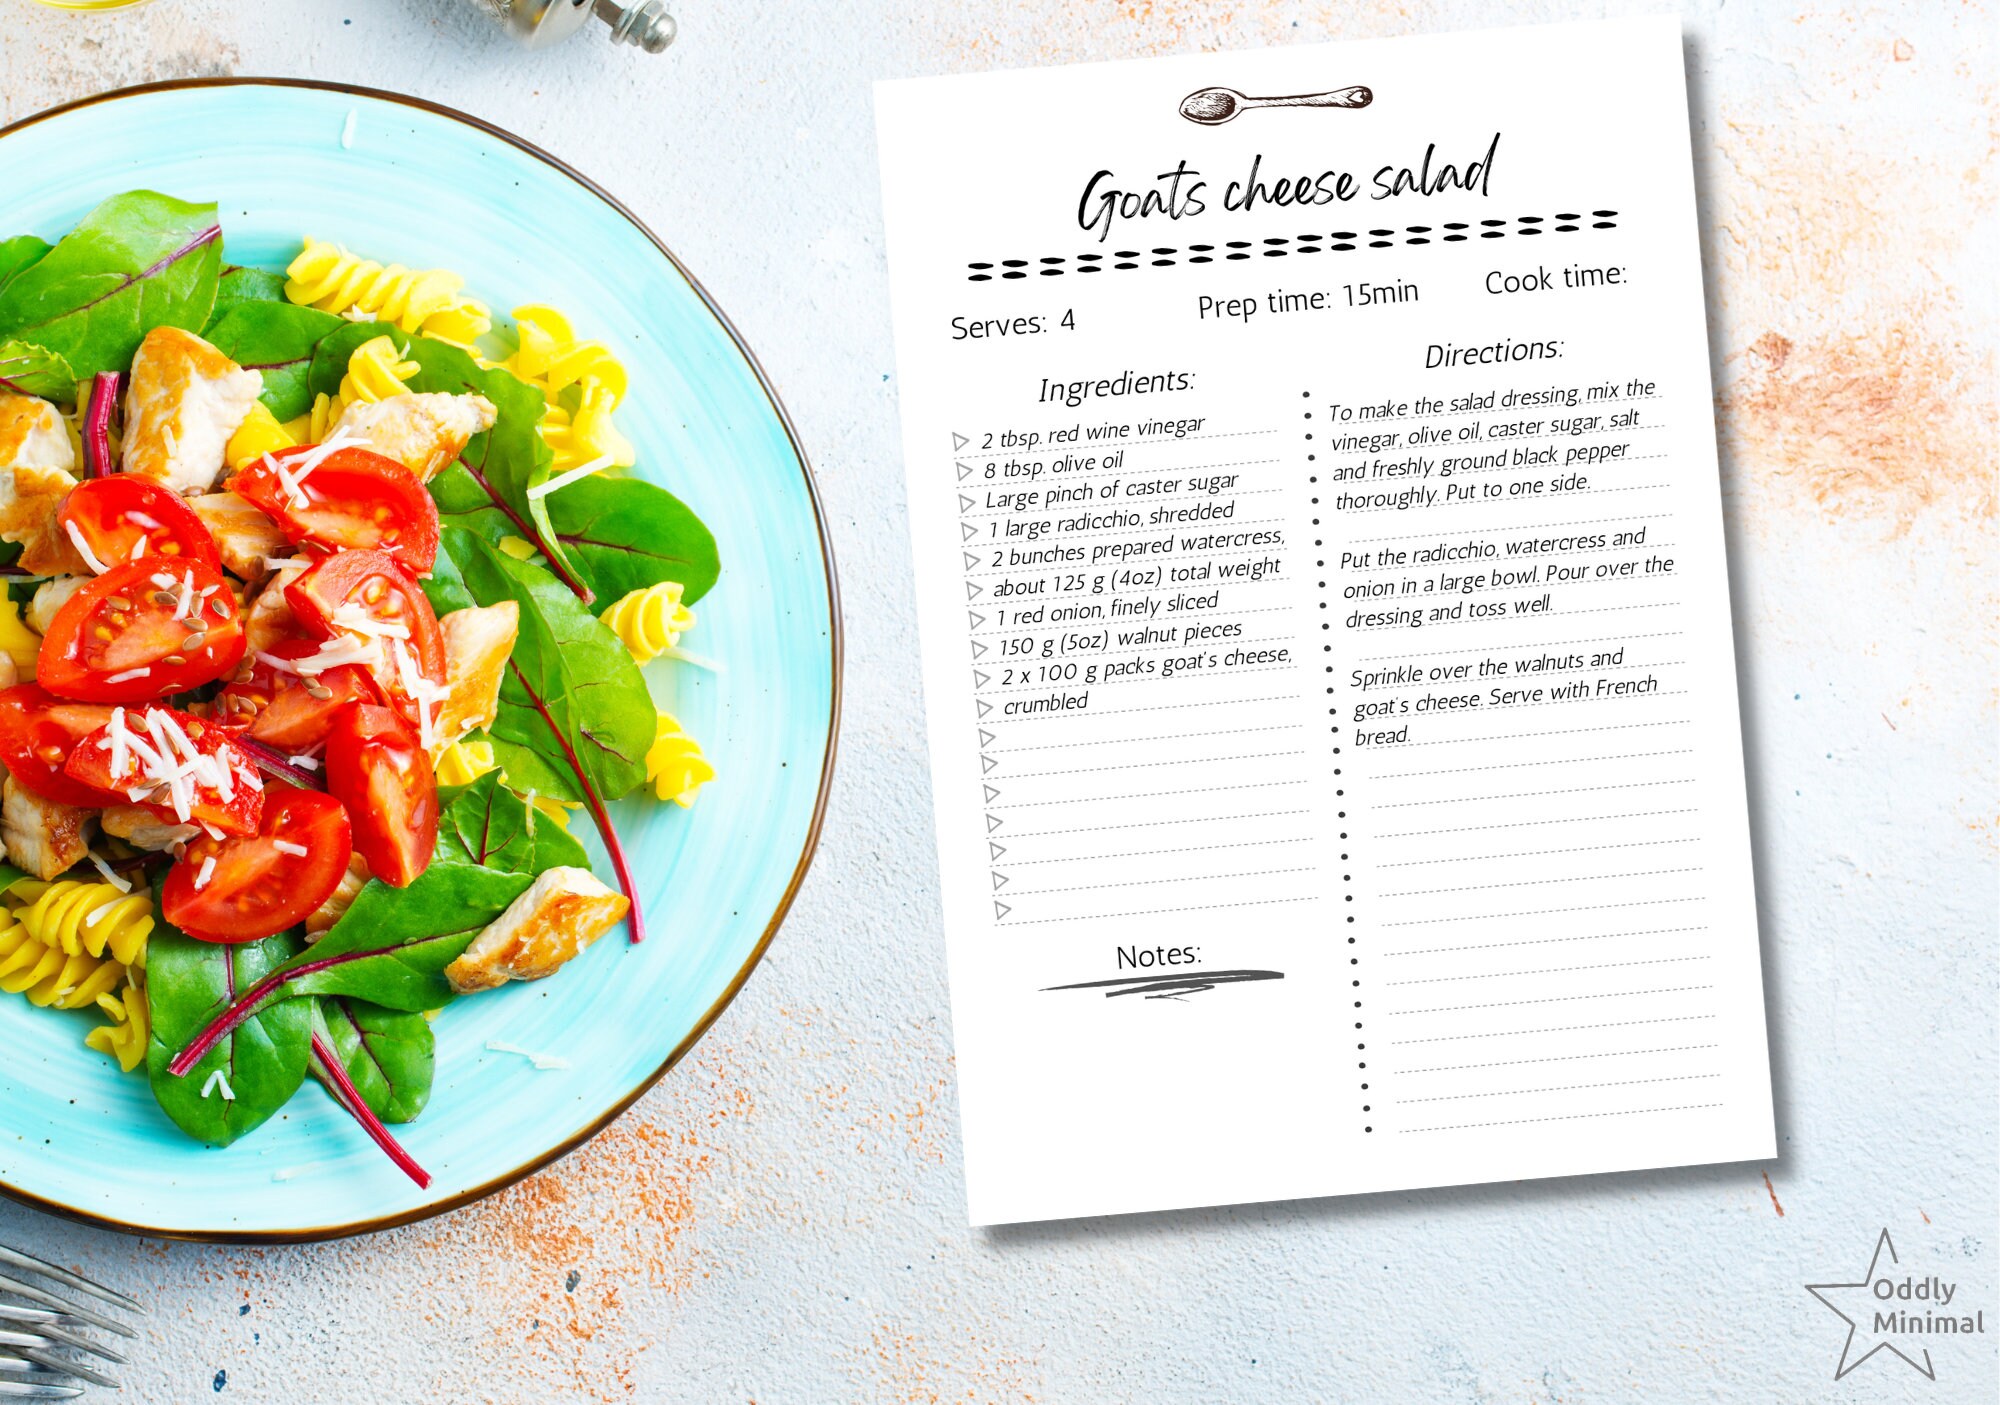 Goats cheese salad
Serves: 4
Prep time: 15min
Cook time:
Ingredients:
2 tbsp. red wine vinegar
8 tbsp. olive oil
Large pinch of caster sugar
1 large radicchio, shredded
2 bunches prepared watercress,
about 125 g (4oz) total weight
1 red onion, finely sliced
150 g (5oz) walnut pieces
2 x 100 g packs goat's cheese,
crumbled
Notes:
Directions:
To make the salad dressing, mix the
vinegar, olive oil, caster sugar, salt
and freshly ground black pepper
thoroughly. Put to one side.
Put the radicchio, watercress and
onion in a large bowl. Pour over the
dressing and toss well.
Sprinkle over the walnuts and
goat's cheese. Serve with French
bread.
Oddly
Minimal